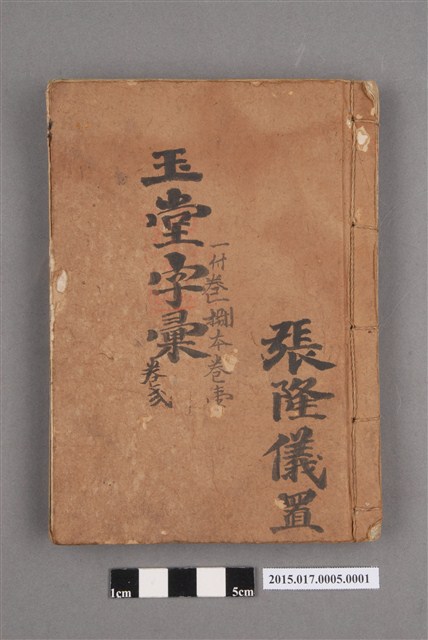 玉堂字彙
卷弍
一付卷一捌本卷壹
張隆儀置
1cm
5cm
2015.017.0005.0001